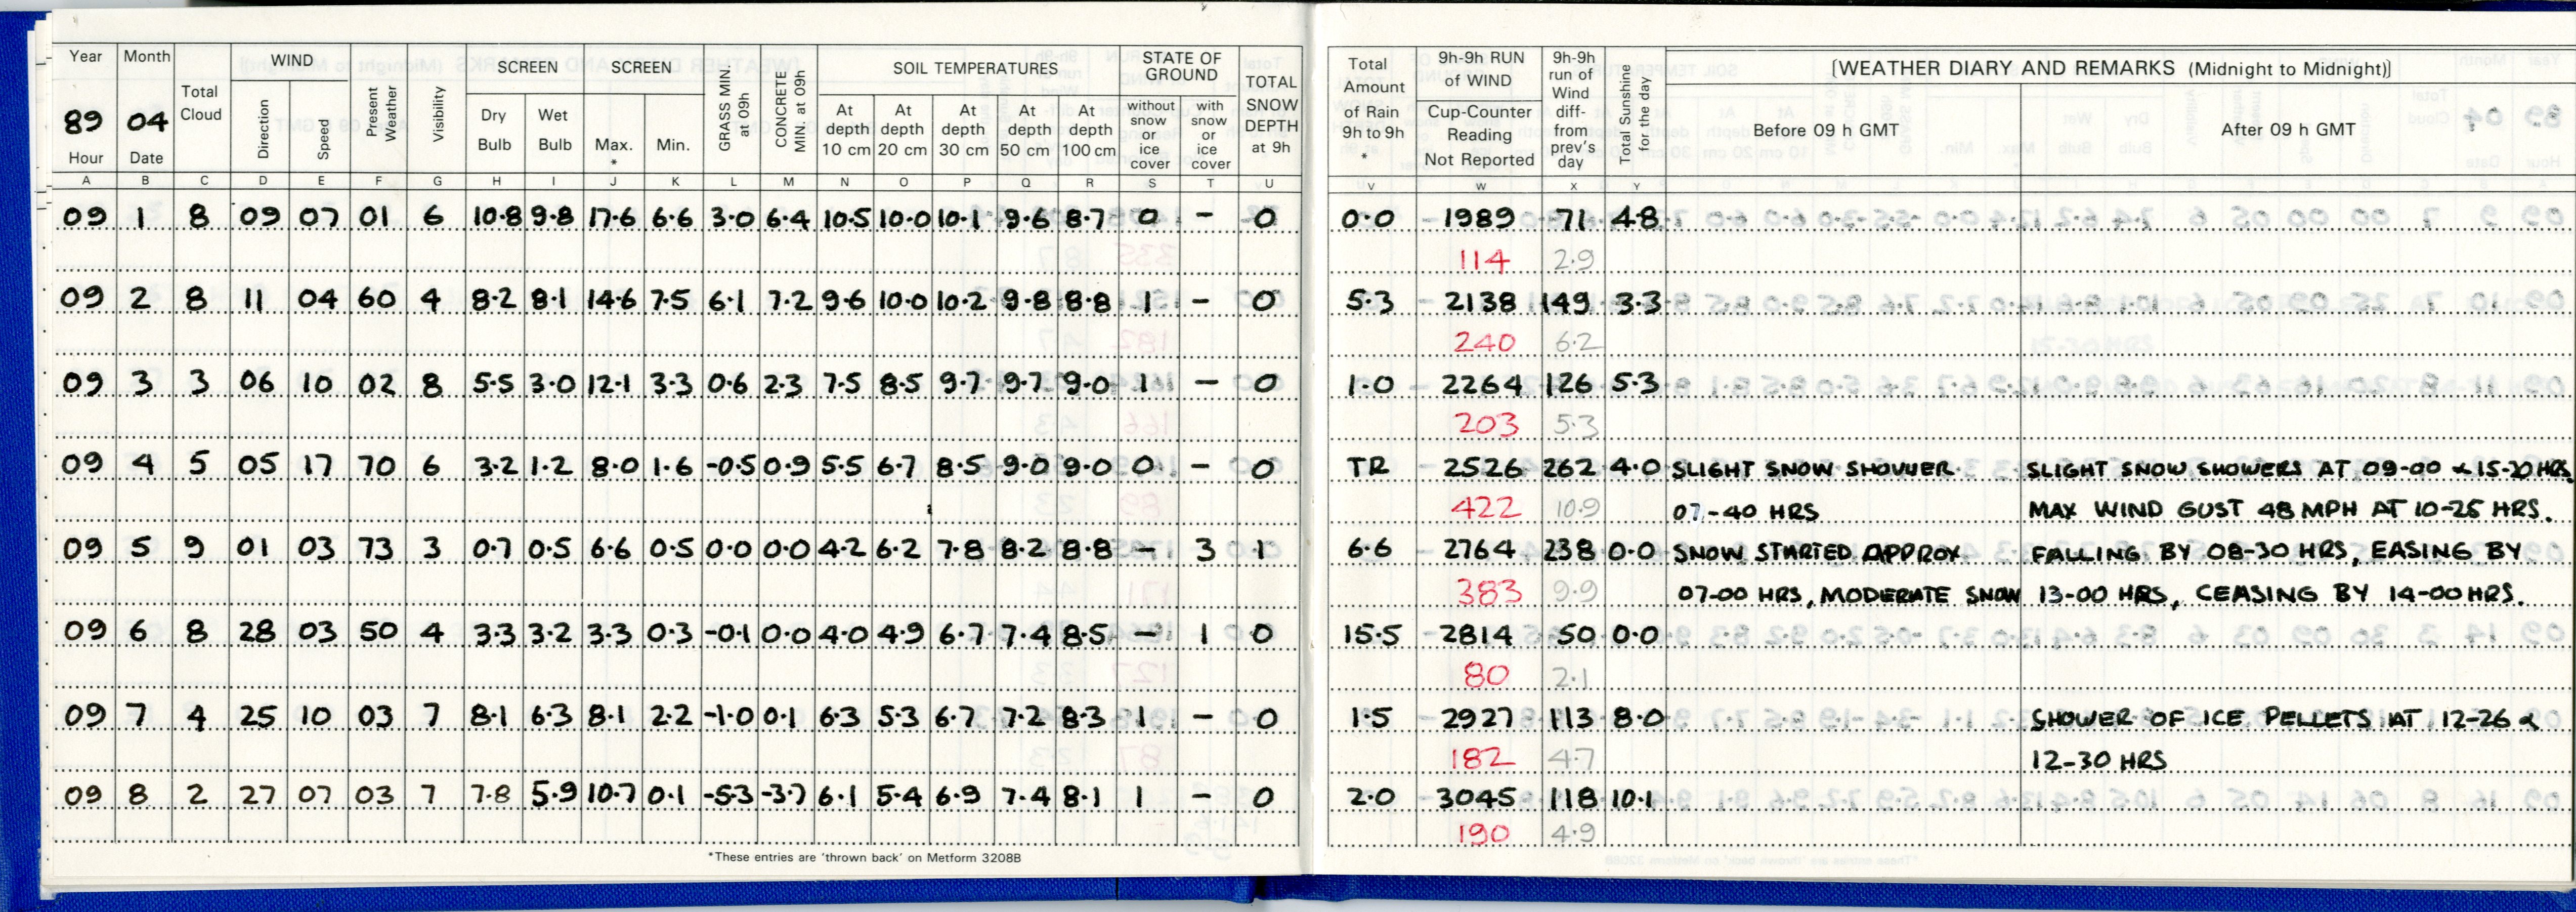 Year Month Total Cloud WIND Direction Speed Present Weather Visibility SCREEN Dry Bulb Wet Bulb SCREEN Max. * Min. GRASS MIN. at 09h CONCRETE MIN. at 09h SOIL TEMPERATURES At depth 10 cm At depth 20 cm At depth 30 cm At depth 50 cm At depth 100 cm STATE OF GROUND without snow or ice cover with snow or ice cover TOTAL SNOW DEPTH at 9h Total Amount of Rain 9h to 9h * 9h-9h RUN of WIND Cup-Counter Reading Not Reported 9h-9h run of Wind diff- from prev's day Total Sunshine for the day [WEATHER DIARY AND REMARKS (Midnight to Midnight)] Before 09 h GMT After 09 h GMT
89 04
Hour Date
A B C D E F G H I J K L M N O P Q R S T U V W X Y
09 1 8 09 07 01 6 10.8 9.8 17.6 6.6 3.0 6.4 10.5 10.0 10.1 9.6 8.7 0 - 0 0.0 1989 71 4.8
114 2.9
09 2 8 11 04 60 4 8.2 8.1 14.6 7.5 6.1 7.2 9.6 10.0 10.2 9.8 8.8 1 - 0 5.3 2138 149 3.3
240 6.2
09 3 3 06 10 02 8 5.5 3.0 12.1 3.3 0.6 2.3 7.5 8.5 9.7 9.7 9.0 1 - 0 1.0 2264 126 5.3
203 5.3
09 4 5 05 17 70 6 3.2 1.2 8.0 1.6 -0.5 0.9 5.5 6.7 8.5 9.0 9.0 0 - 0 TR 2526 262 4.0 SLIGHT SNOW SHOWER SLIGHT SNOW SHOWERS AT 09-00 & 15-20 HRS.
422 10.9 07-40 HRS MAX WIND GUST 48 MPH AT 10-25 HRS.
09 5 9 01 03 73 3 0.7 0.5 6.6 0.5 0.0 0.0 4.2 6.2 7.8 8.2 8.8 - 3 1 6.6 2764 238 0.0 SNOW STARTED APPROX FALLING BY 08-30 HRS, EASING BY
383 9.9 07-00 HRS, MODERATE SNOW 13-00 HRS, CEASING BY 14-00 HRS.
09 6 8 28 03 50 4 3.3 3.2 3.3 0.3 -0.1 0.0 4.0 4.9 6.7 7.4 8.5 - 1 0 15.5 2814 50 0.0
80 2.1
09 7 4 25 10 03 7 8.1 6.3 8.1 2.2 -1.0 0.1 6.3 5.3 6.7 7.2 8.3 1 - 0 1.5 2927 113 8.0 SHOWER OF ICE PELLETS AT 12-26 &
182 4.7 12-30 HRS
09 8 2 27 07 03 7 7.8 5.9 10.7 0.1 -5.3 -3.7 6.1 5.4 6.9 7.4 8.1 1 - 0 2.0 3045 118 10.1
190 4.9
*These entries are 'thrown back' on Metform 3208B